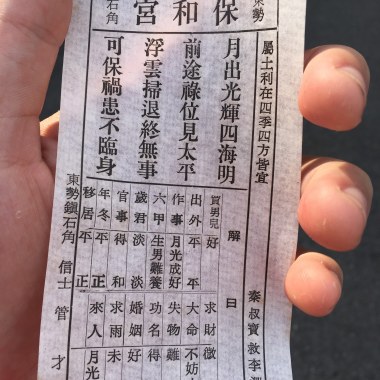 東勢
保和宮
石角
屬土利在四季四方皆宜
月出光輝四海明
前途祿位見太平
浮雲掃退終無事
可保禍患不臨身
解曰
秦叔寶救李
買男兒 好 求財 微
出外 平平 大命 不妨
作事 月光成好 失物 難
六甲 生男難養 功名 得
歲君 淡淡 婚姻 好
官事 得和 求雨 未
年冬 平正 來人 月光
移居 平正
東勢鎮石角 信士 管 才